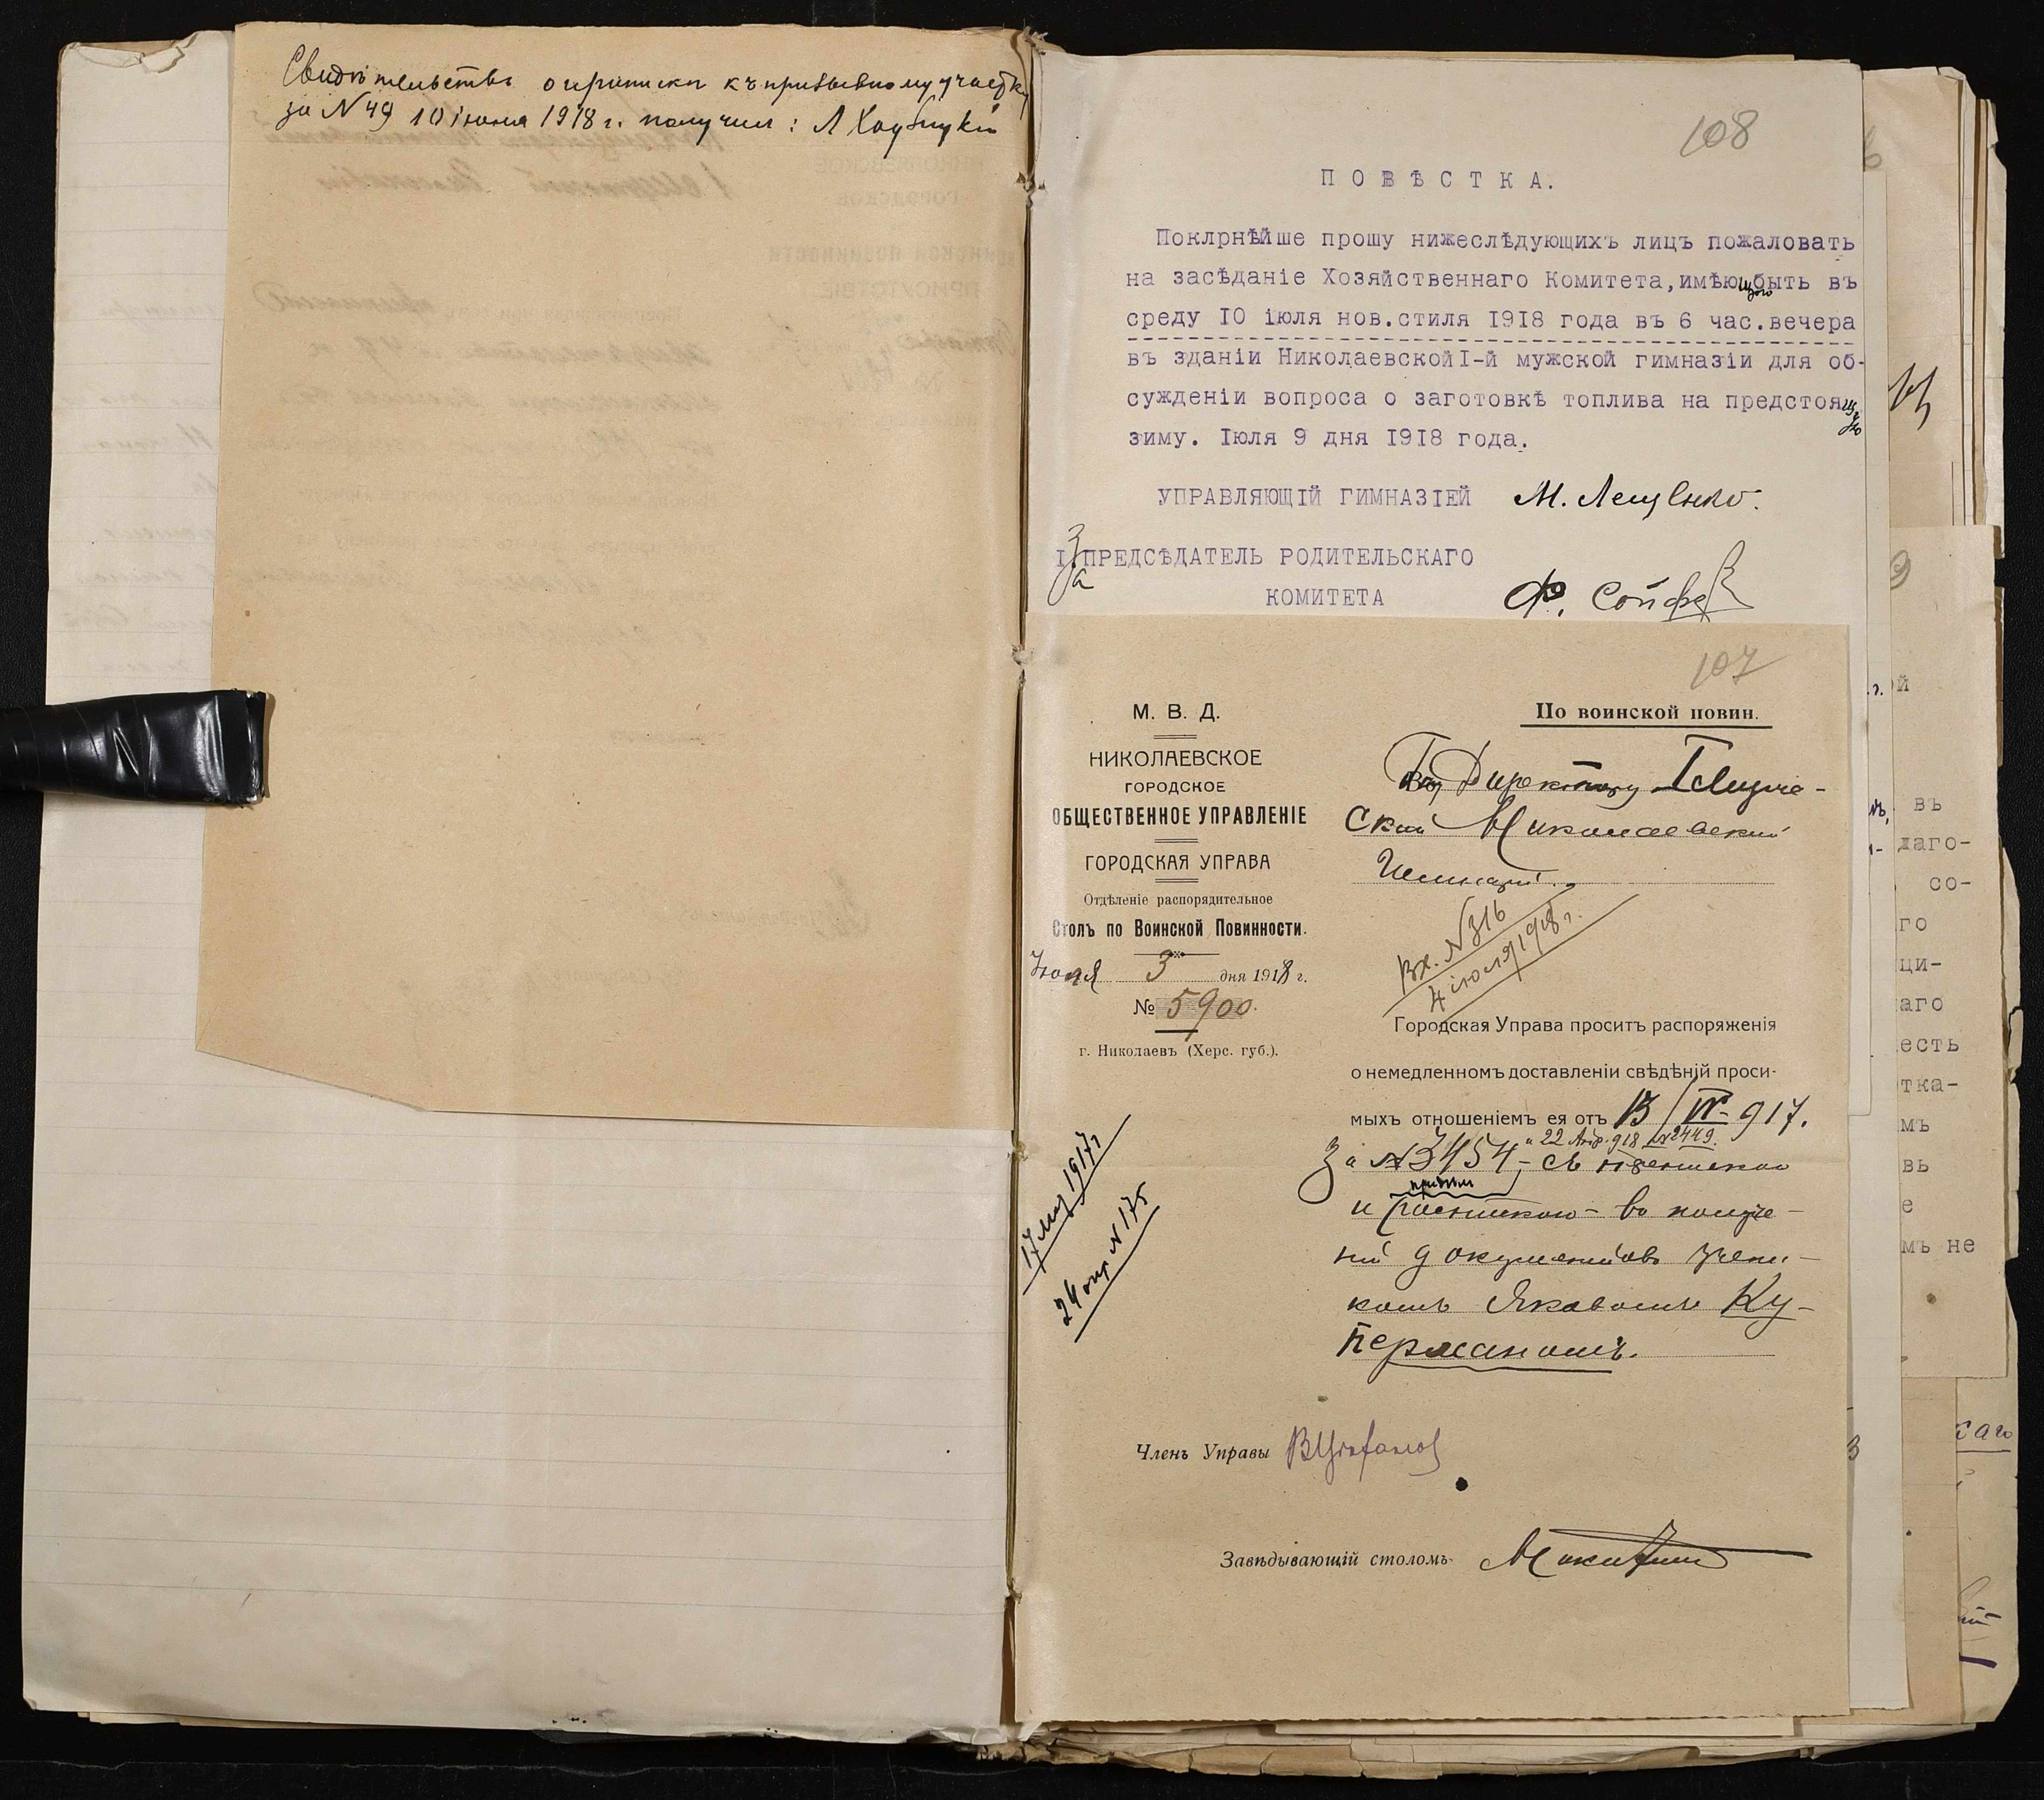 Свидѣтельство о приписки къ призывному участку
за № 49 10 іюня 1918 г. получил: Л
108
ПОВѢСТКА.
Поклрнѣйше прошу нижеслѣдующихъ лицъ пожаловать
на засѣданіе Хозяйственнаго Комитета,имѣющаго быть въ
среду 10 іюля нов.стиля 1918 года въ 6 час.вечера
въ зданіи Николаевской I-й мужской гимназіи для об-
сужденіи вопроса о заготовкѣ топлива на предстоящую
зиму. Іюля 9 дня 1918 года.
УПРАВЛЯЮЩІЙ ГИМНАЗІЕЙ М. Лещенко.
За ПРЕДСѢДАТЕЛЬ РОДИТЕЛЬСКАГО
КОМИТЕТА Ф. Сойфер
107
М. В. Д.
НИКОЛАЕВСКОЕ
ГОРОДСКОЕ
ОБЩЕСТВЕННОЕ УПРАВЛЕНІЕ
ГОРОДСКАЯ УПРАВА
Отдѣленіе распорядительное
Столъ по Воинской Повинности.
Іюля 3 дня 1918 г.
№ 5900.
г. Николаевъ (Херс. губ.).
По воинской повин.
Директору I Мужче-
ской Николаевской
Гимназіи.
Вх. № 316
4 іюля 1918 г.
Городская Управа проситъ распоряженія
о немедленномъ доставленіи свѣдѣній проси-
мыхъ отношеніемъ ея отъ 13/IV 917.
и 22 Апр. 918 № 2449.
За № 3454,- съ
и роспискою - въ получе-
ніи документовъ учени-
комъ Яковомъ Ку-
перманомъ.
17 мар 1917 г
24 апр № 175
Членъ Управы
Завѣдывающій столомъ
й
въ
лаго-
со-
го
ци-
аго
есть
тка-
мъ
вь
е
мъ не
каго